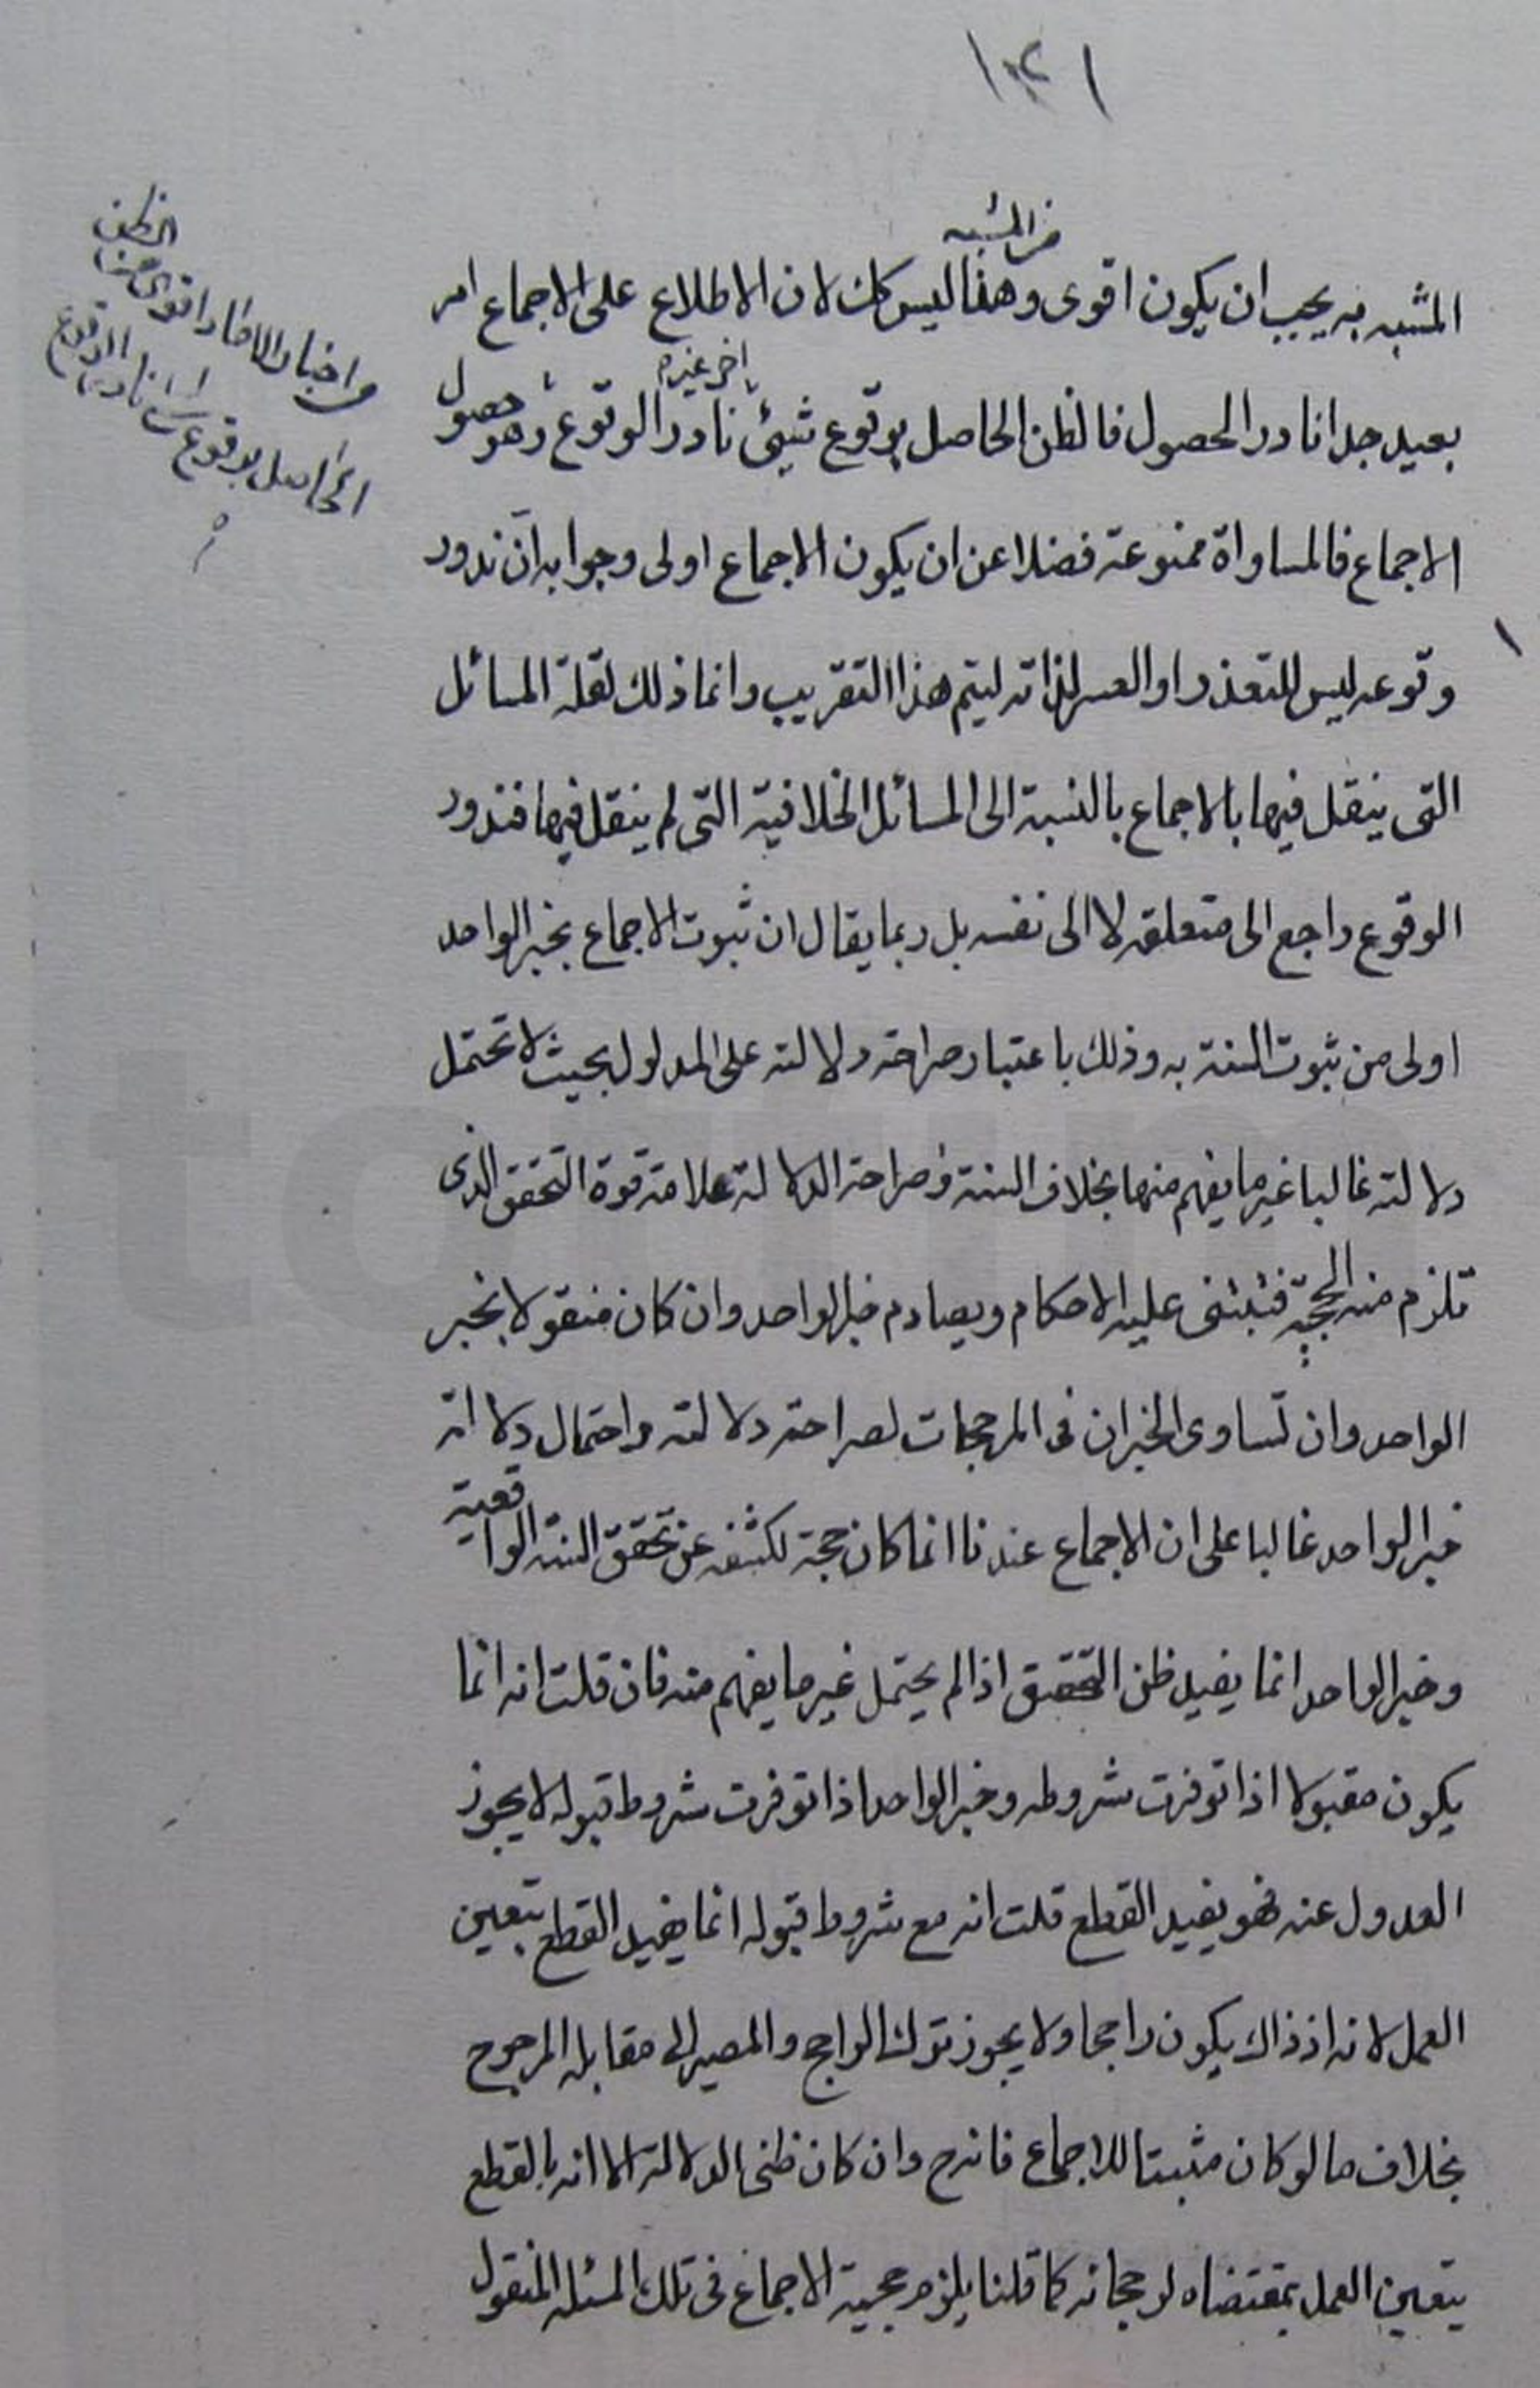 ١٢١
من المشبه
المشبه به يجب ان يكون اقوى وهذا ليس كك لان الاطلاع على الاجماع امر
اخر غيره
بعيد جدا نادر الحصول فالظن الحاصل بوقوع شيئ نادر الوقوع وهو حصول
الاجماع فالمساواة ممنوعة فضلا عن ان يكون الاجماع اولى وجوابه ان ندور
وقوعه ليس للتعذر او العسر لذاته ليتم هذا التقريب وانما ذلك لقلة المسائل
التى ينقل فيها بالاجماع بالنسبة الى المسائل الخلافية التى لم ينقل فيها فندور
الوقوع راجع الى متعلقه لا الى نفسه بل ربما يقال ان ثبوت الاجماع بخبر الواحد
اولى من ثبوت السنة به وذلك باعتبار صراحة دلالته على المدلول بحيث لا تحتمل
دلالته غالبا غير ما يفهم منها بخلاف السنة وصراحة الدلالة علامة قوة التحقق الذى
تلزم منه الحجية فتبتنى عليه الاحكام ويصادم خبر الواحد وان كان منقولا بخبر
الواحد وان تساوى الخبران فى المرجحات لصراحة دلالته واحتمال دلالة
خبر الواحد غالبا على ان الاجماع عندنا انما كان حجة لكشفه عن تحقق السنة الواقعية
وخبر الواحد انما يفيد ظن التحقيق اذا لم يحتمل غير ما يفهم منه فان قلت انه انما
يكون مقبولا اذا توفرت شروطه وخبر الواحد اذا توفرت شروط قبوله لا يجوز
العدول عنه فهو يفيد القطع قلت انه مع شروط قبوله انما يفيد القطع بتعين
العمل لانه اذ ذاك يكون راجحا ولا يجوز ترك الراجح والمصير الى مقابله المرجوح
بخلاف ما لو كان مثبتا للاجماع فانه ح وان كان ظنى الدلالة الا انه بالقطع
يتعين العمل بمقتضاه لرجحانه كما قلنا يلزم حجية الاجماع فى تلك المسئله المنقول
الظن
واخبار الاحاد اقوى من
الحاصل بوقوع نادر الوقوع